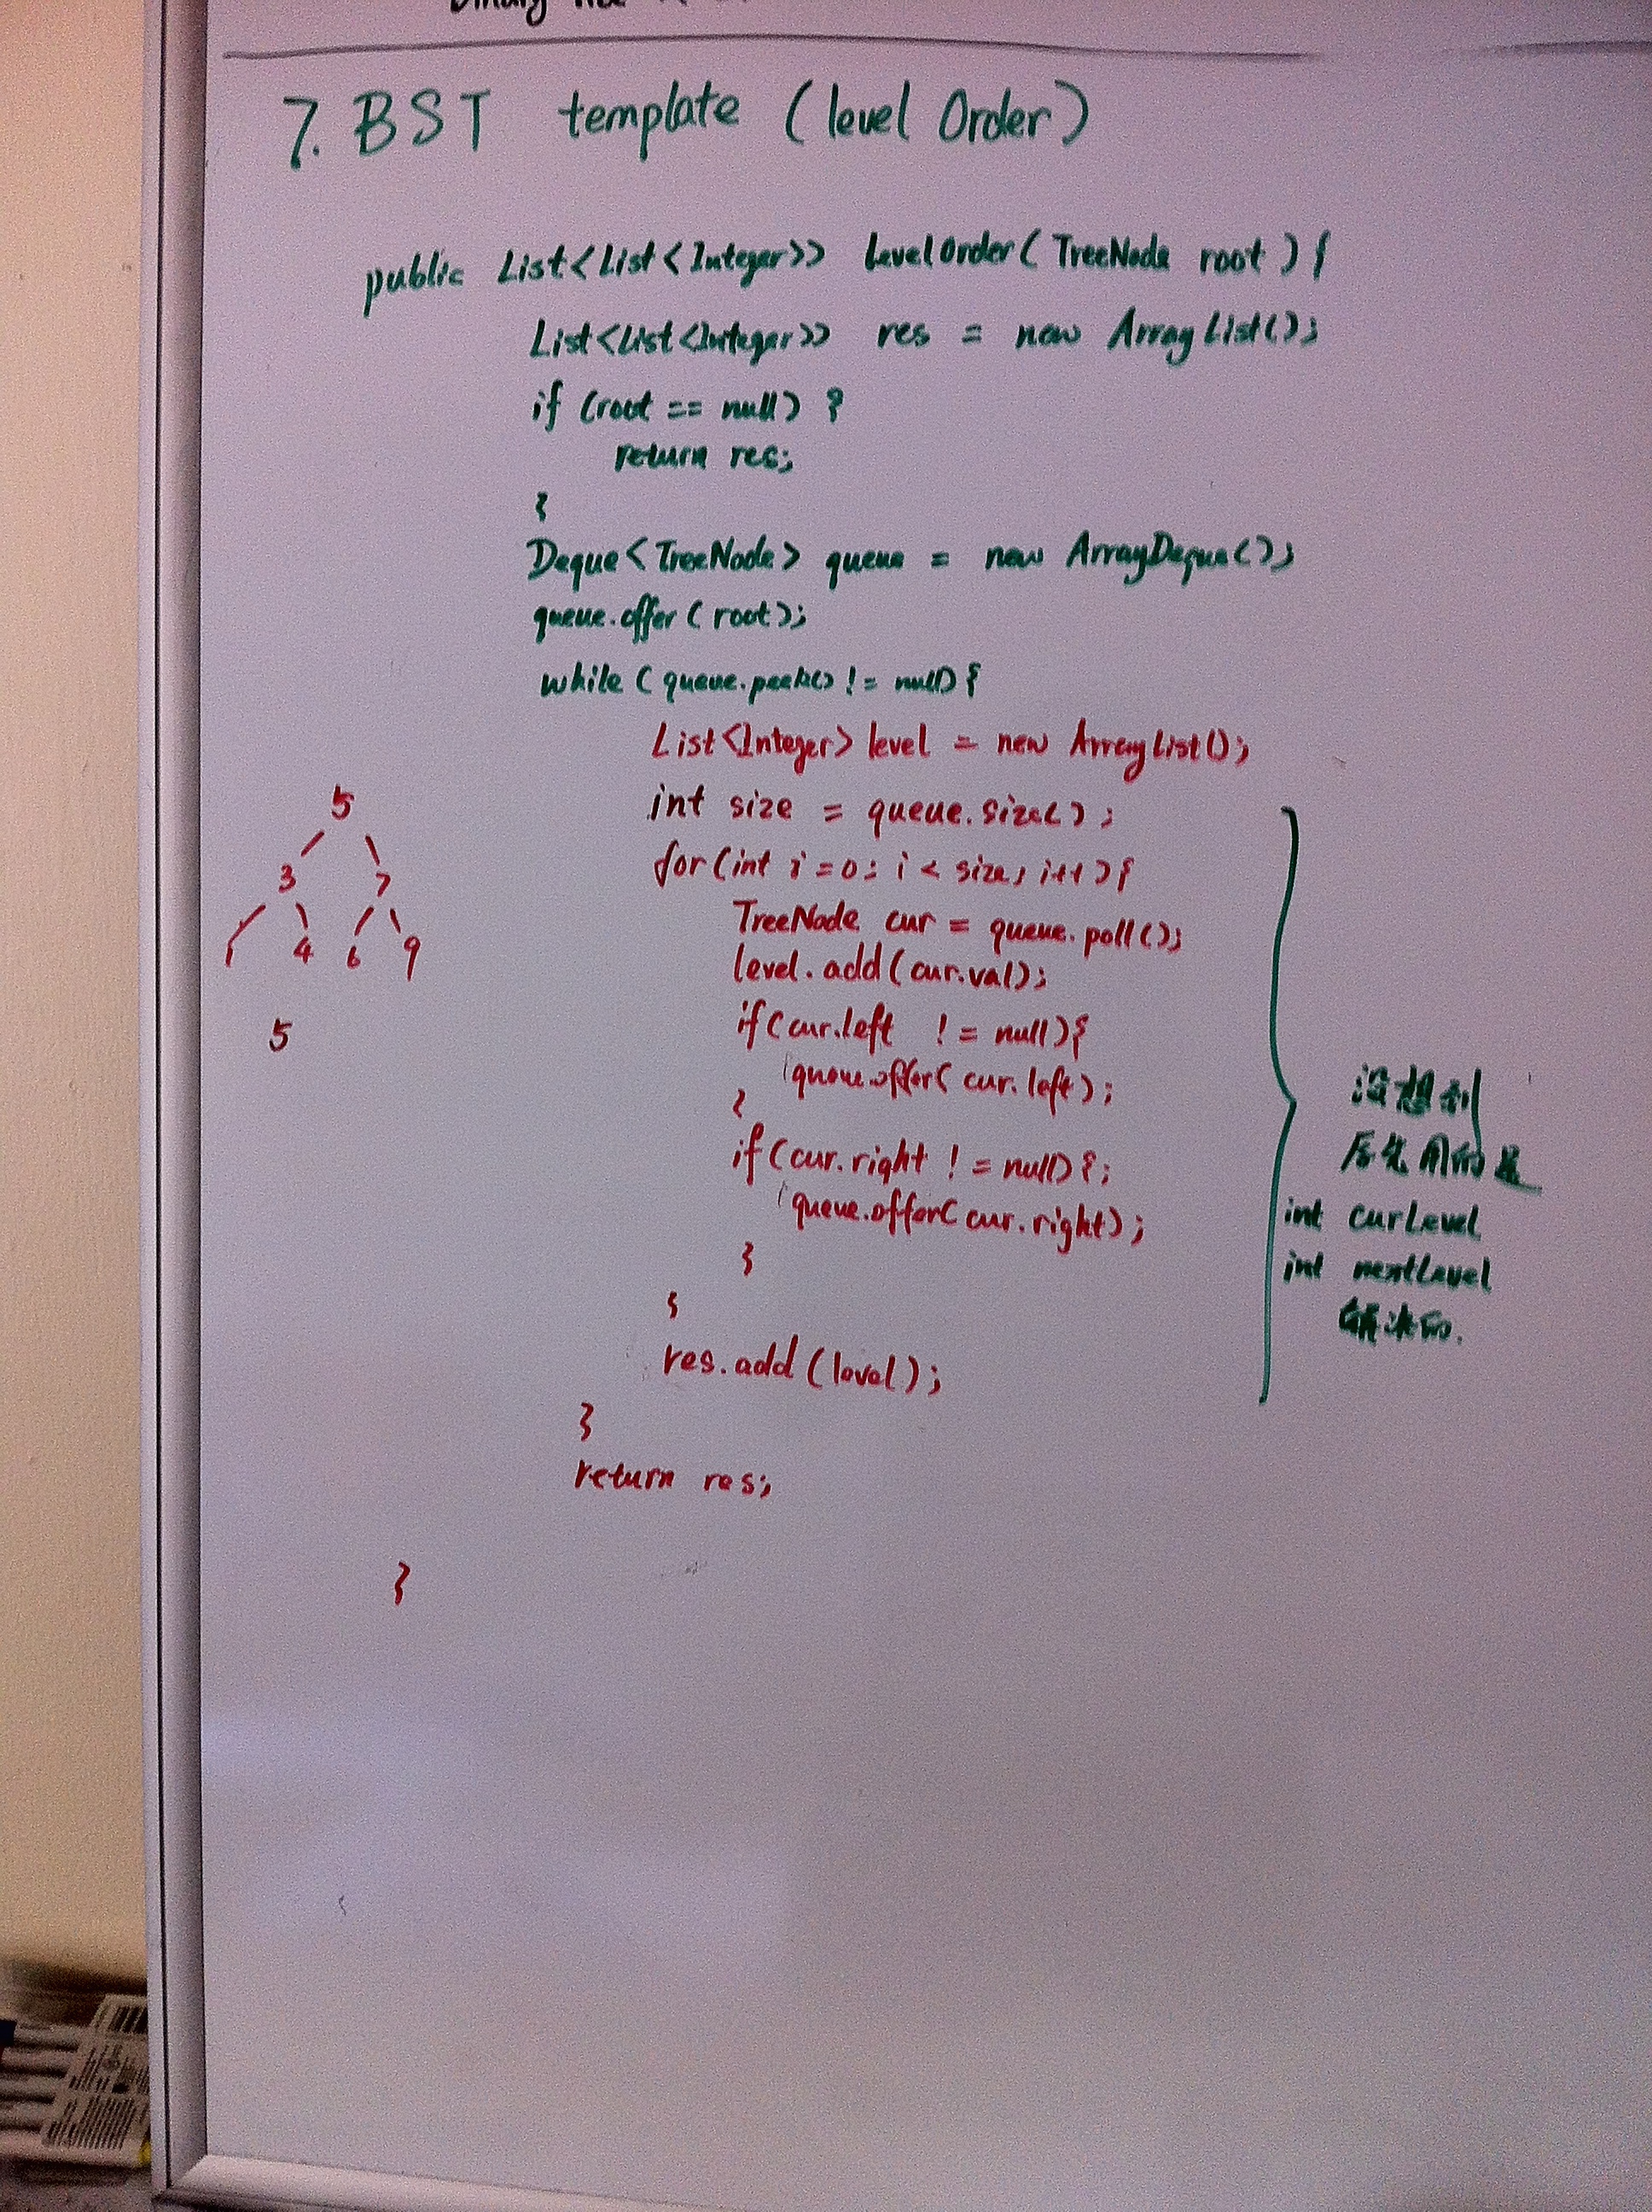 Binary
7. BST template (level Order)
public List<List<Integer>> levelOrder(TreeNode root){
List<List<Integer>> res = new ArrayList();
if (root == null) {
return res;
}
Deque<TreeNode> queue = new ArrayDeque();
queue.offer(root);
while (queue.peek() != null){
List<Integer> level = new ArrayList();
int size = queue.size();
for(int i=0; i < size; i++){
TreeNode cur = queue.poll();
level.add(cur.val);
if(cur.left != null){
queue.offer(cur.left);
}
if(cur.right != null){;
queue.offer(cur.right);
}
}
res.add(level);
}
return res;
}
5
3 7
1 4 6 9
5
没想到
原先用的是
int curLevel
int nextLevel